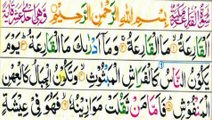 بِسْمِ اللّٰهِ الرَّحْمٰنِ الرَّحِيْمِ
اَلْقَارِعَةُ مَا الْقَارِعَةُ وَمَاۤ اَدْرٰىكَ مَا الْقَارِعَةُ يَوْمَ
يَكُوْنُ النَّاسُ كَالْفَرَاشِ الْمَبْثُوْثِ وَتَكُوْنُ الْجِبَالُ كَالْعِهْنِ
الْمَنْفُوْشِ فَاَمَّا مَنْ ثَقُلَتْ مَوَازِيْنُهٗ فَهُوَ فِيْ عِيْشَةٍ